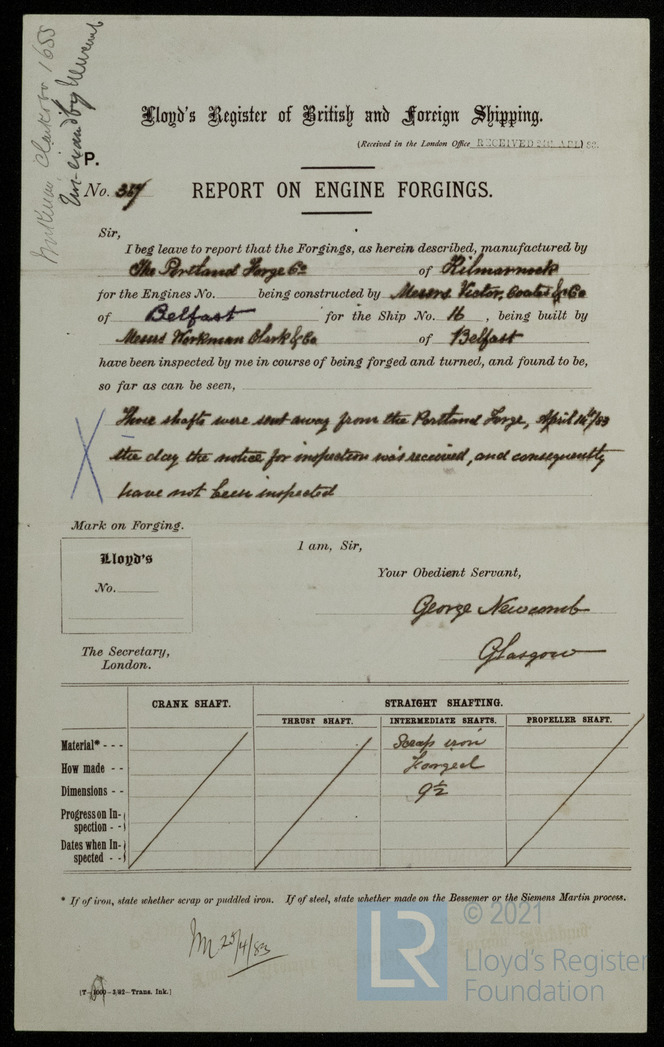 Workman Clark & Co 1655
Newcomb
Lloyd's Register of British and Foreign Shipping.
(Received in the London Office RECEIVED APL 83
P.
No. 317 REPORT ON ENGINE FORGINGS.
Sir,
I beg leave to report that the Forgings, as herein described, manufactured by
The Portland Forge Co of Kilmarnock
for the Engines No. being constructed by Messrs Victor, Coates & Co
of Belfast for the Ship No. 16, being built by
Messrs Workman Clark & Co of Belfast
have been inspected by me in course of being forged and turned, and found to be,
so far as can be seen,
These shafts were sent away from the Portland Forge, April 14th/83
the day the notice for inspection was received, and consequently
have not been inspected
Mark on Forging.
Lloyd's
No.
I am, Sir,
Your Obedient Servant,
George Newcomb
Glasgow
The Secretary,
London.
CRANK SHAFT. STRAIGHT SHAFTING.
THRUST SHAFT. INTERMEDIATE SHAFTS. PROPELLER SHAFT.
Material* - - - Scrap iron
How made - - Forged
Dimensions - - 9½
Progress on In-
spection - -
Dates when In-
spected - -
* If of iron, state whether scrap or puddled iron. If of steel, state whether made on the Bessemer or the Siemens Martin process.
25/4/83
(T-1000-5/82-Trans. Ink.)
LR © 2021
Lloyd's Register
Foundation